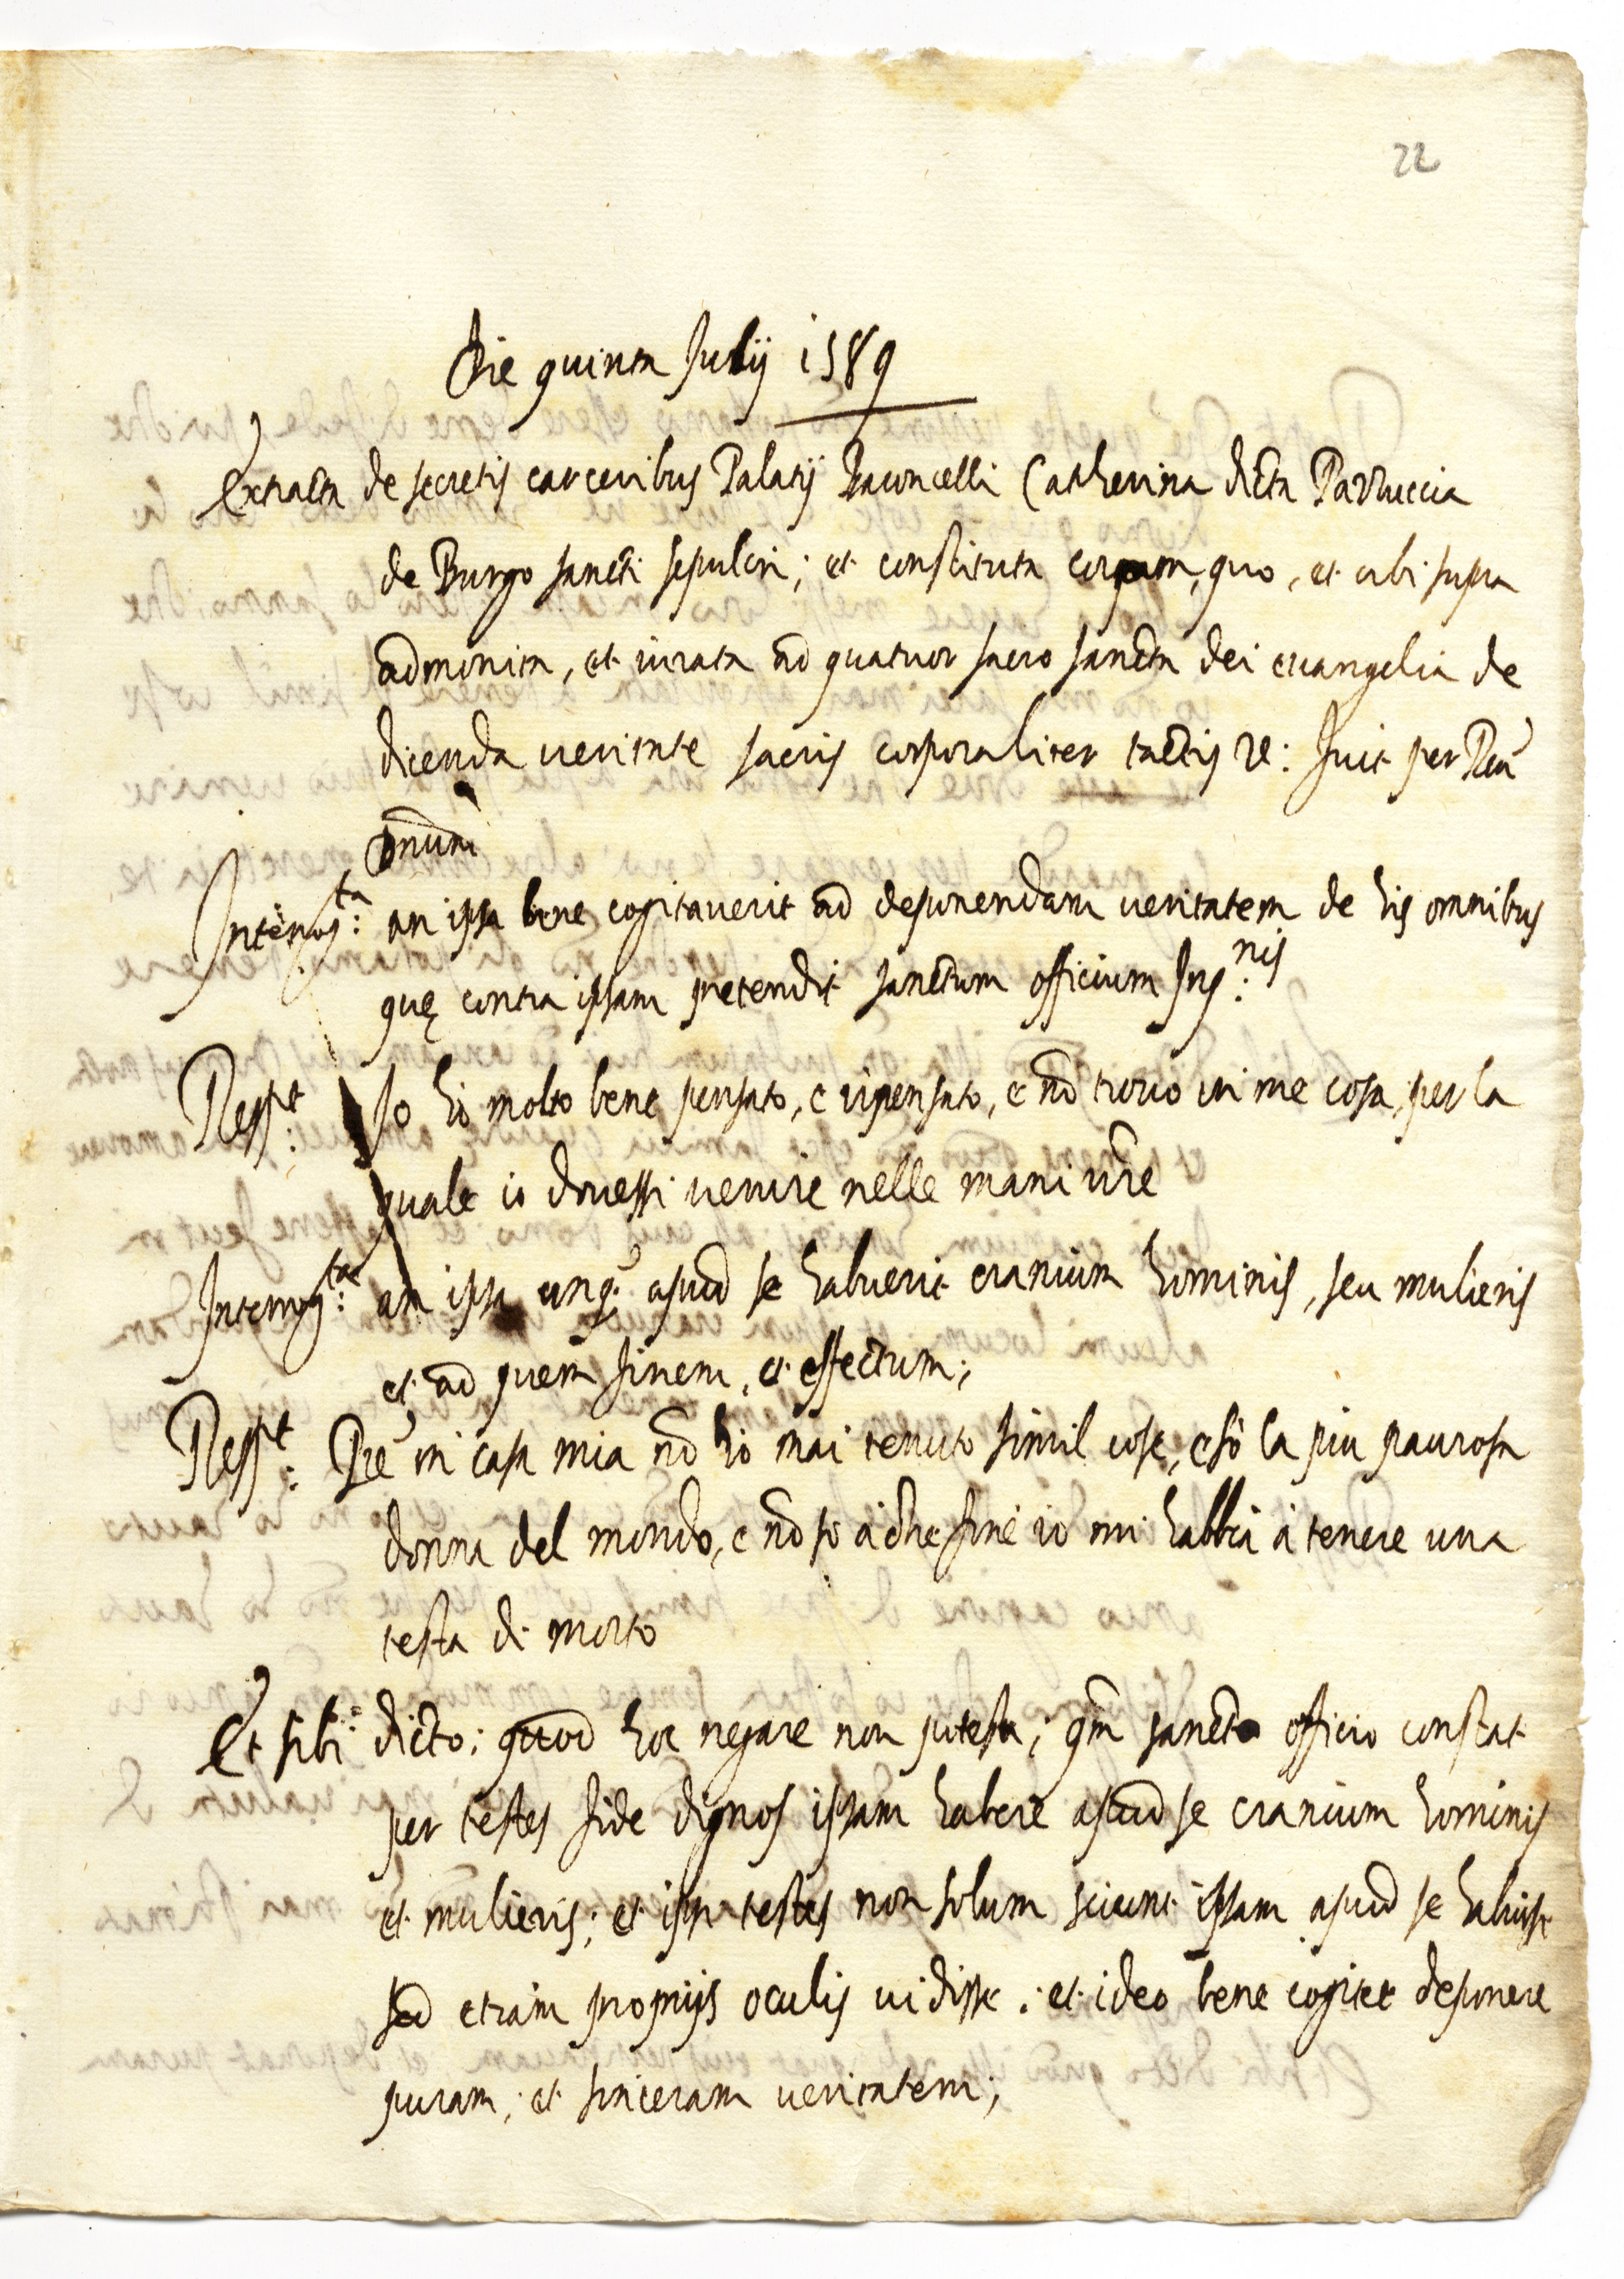 22
Die quinta Julij 1589
Extracta de secretis carceribus Palatij Catherina dicta Parruccia
de Burgo sancti sepulcri; et constituta coram, quo, et ubi supra
admonita, et iurata ad quatuor sacro sancta dei euangelia de
dicenda ueritate sacris corporaliter tactis re: fuit per Reu
Dnum
Interrog:ta an ipsa bene cogitauerit ad deponendam ueritatem de his omnibus
quę contra ipsam pretendit sanctum officium Inq:nis
Resp:t Io hò molto bene pensato, e ripensato, e nō trouo in me cosa, per la
quale io douessi uenire nelle mani vr̄e
Interrog:ta an ipsa unq: apud se habuerit cranium hominis, seu mulieris
et ad quem finem, et effectum;
Resp:t Prē in casa mia nō hò mai tenuto simil cose, e sò la piu paurosa
donna del mondo, e nō sò à che fine io mi habbia à tenere una
testa di morto
Et sibi dicto: quod hoc negare non potest; qm̄ sancto officio constat
per testes fide dignos ipsam habere apud se cranium hominis
et mulieris; et ipsi testes non solum sciunt ipsam apud se habuisse
sed etiam proprijs oculis uidisse: et ideo bene cogitet deponere
puram, et sinceram ueritatem;